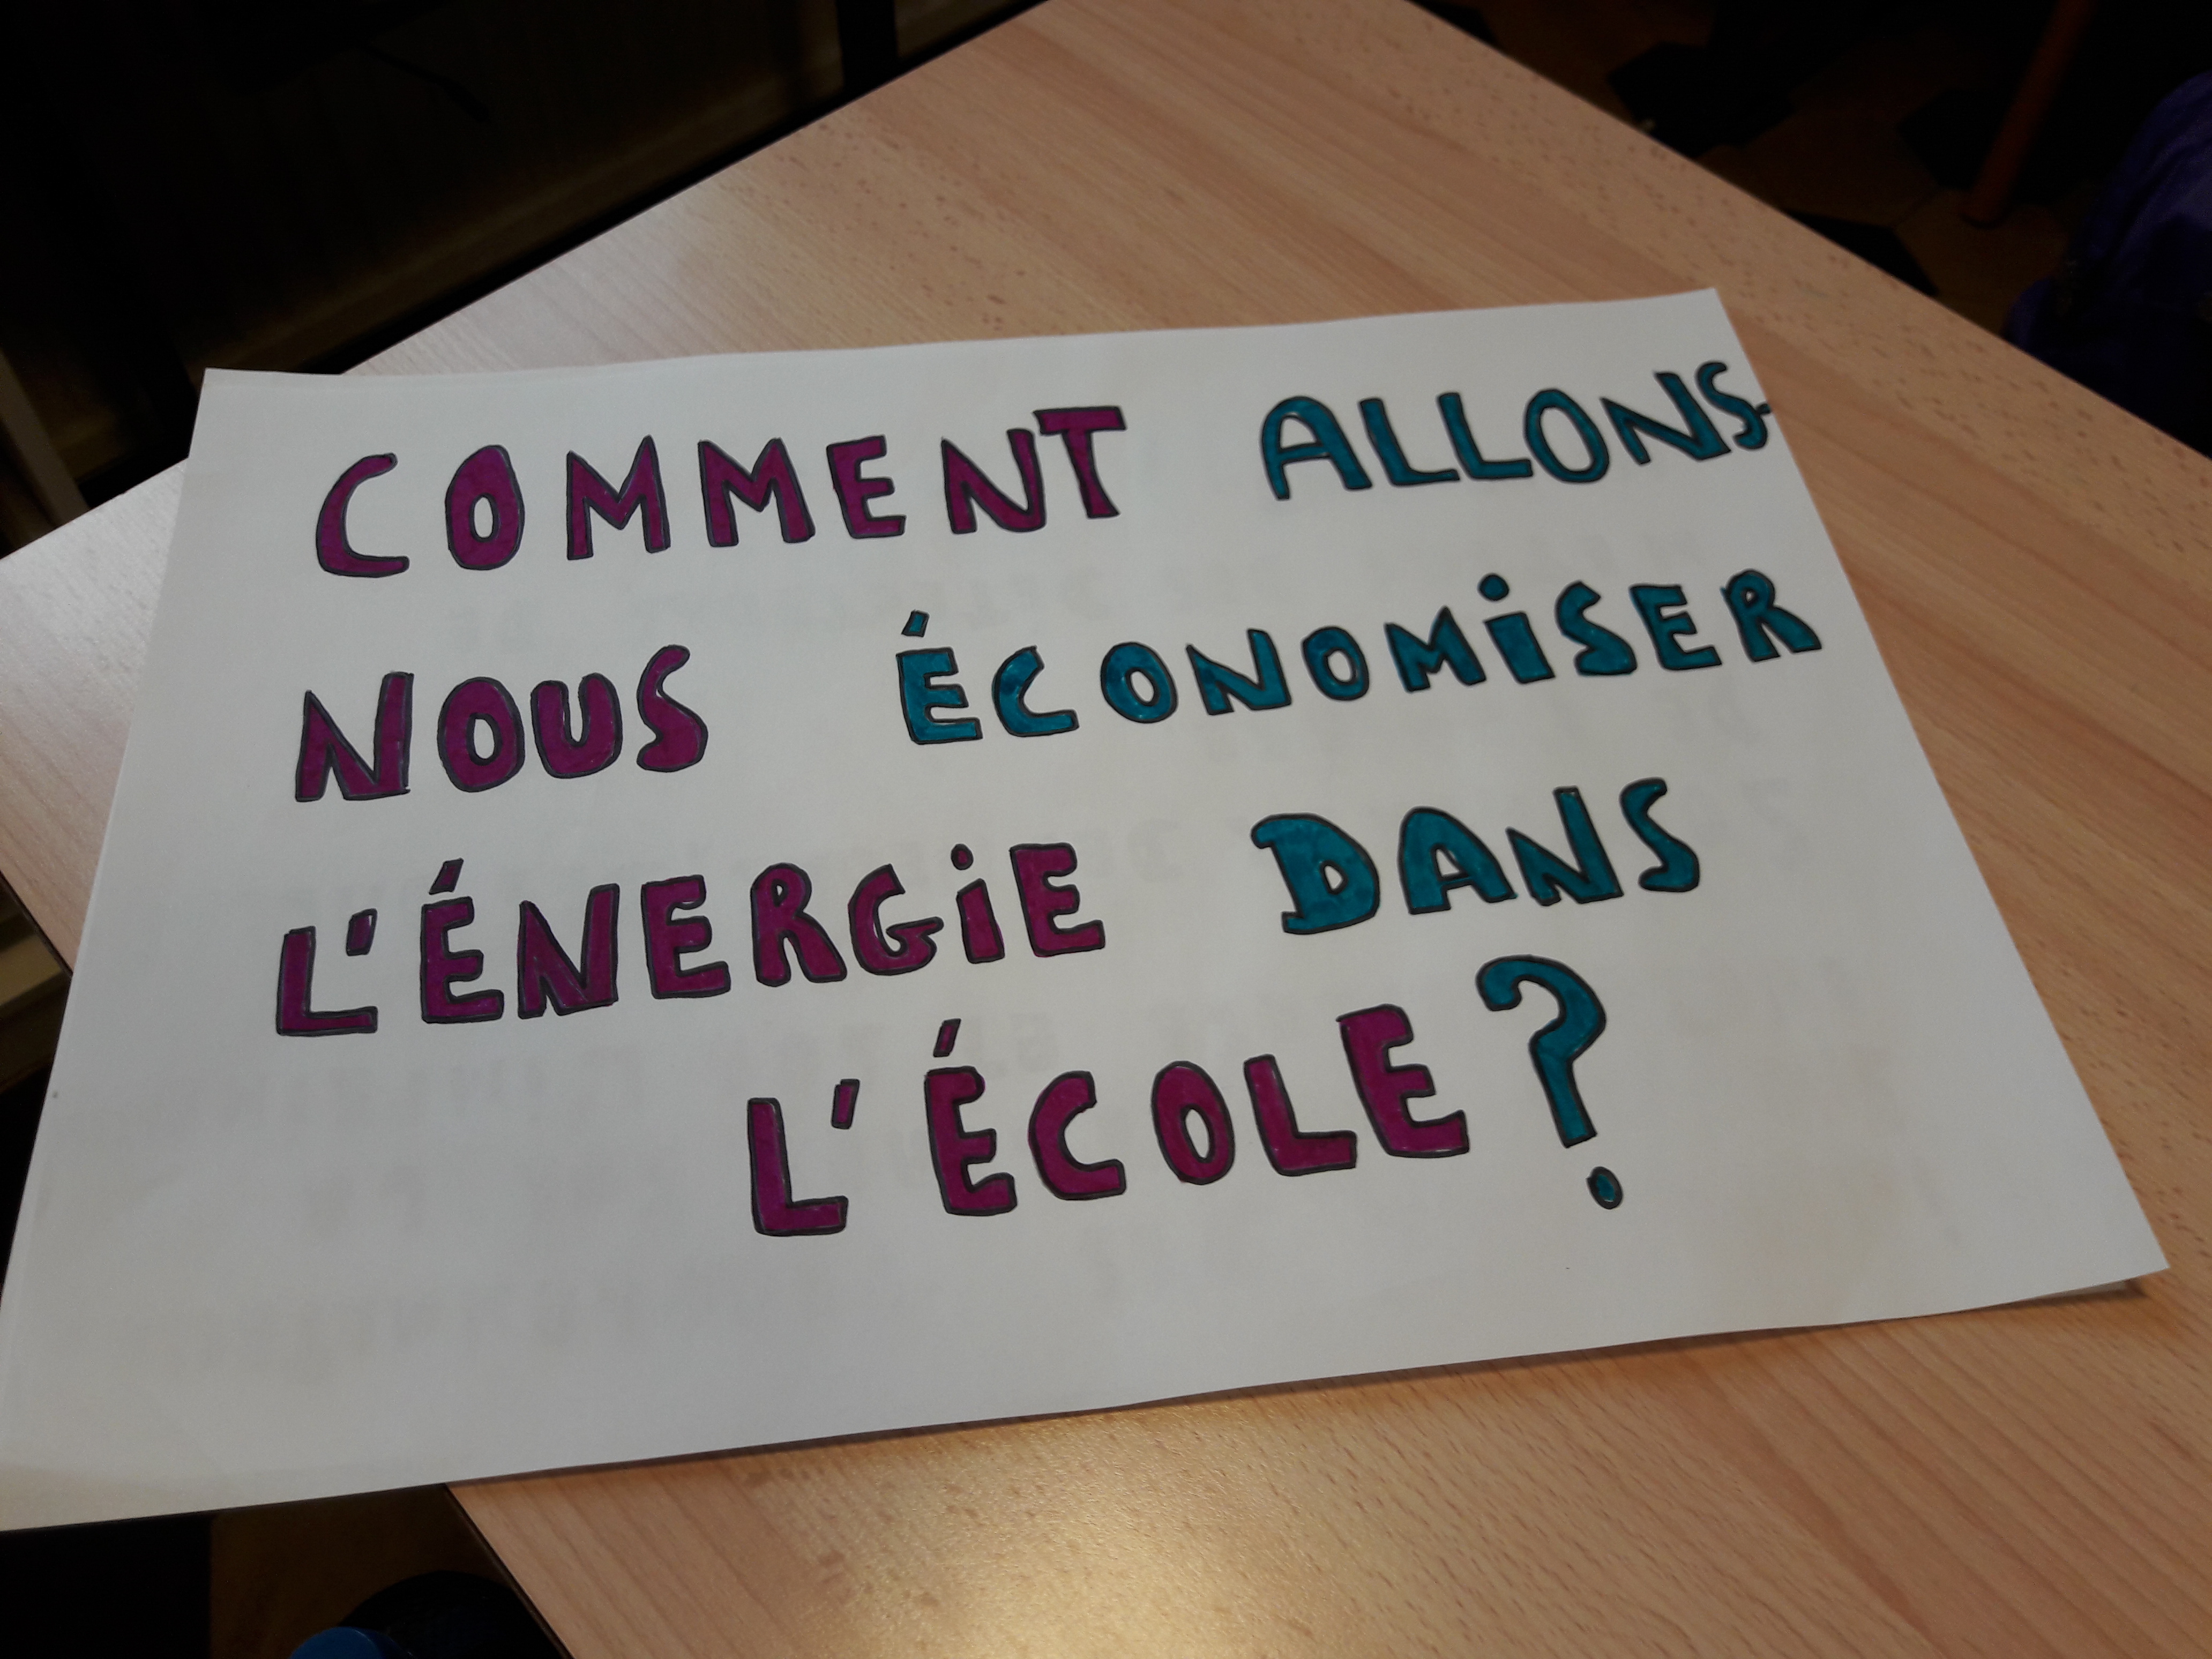 COMMENT ALLONS-
NOUS ÉCONOMiSER
L'ÉNERGiE DANS
L'ÉCOLE?